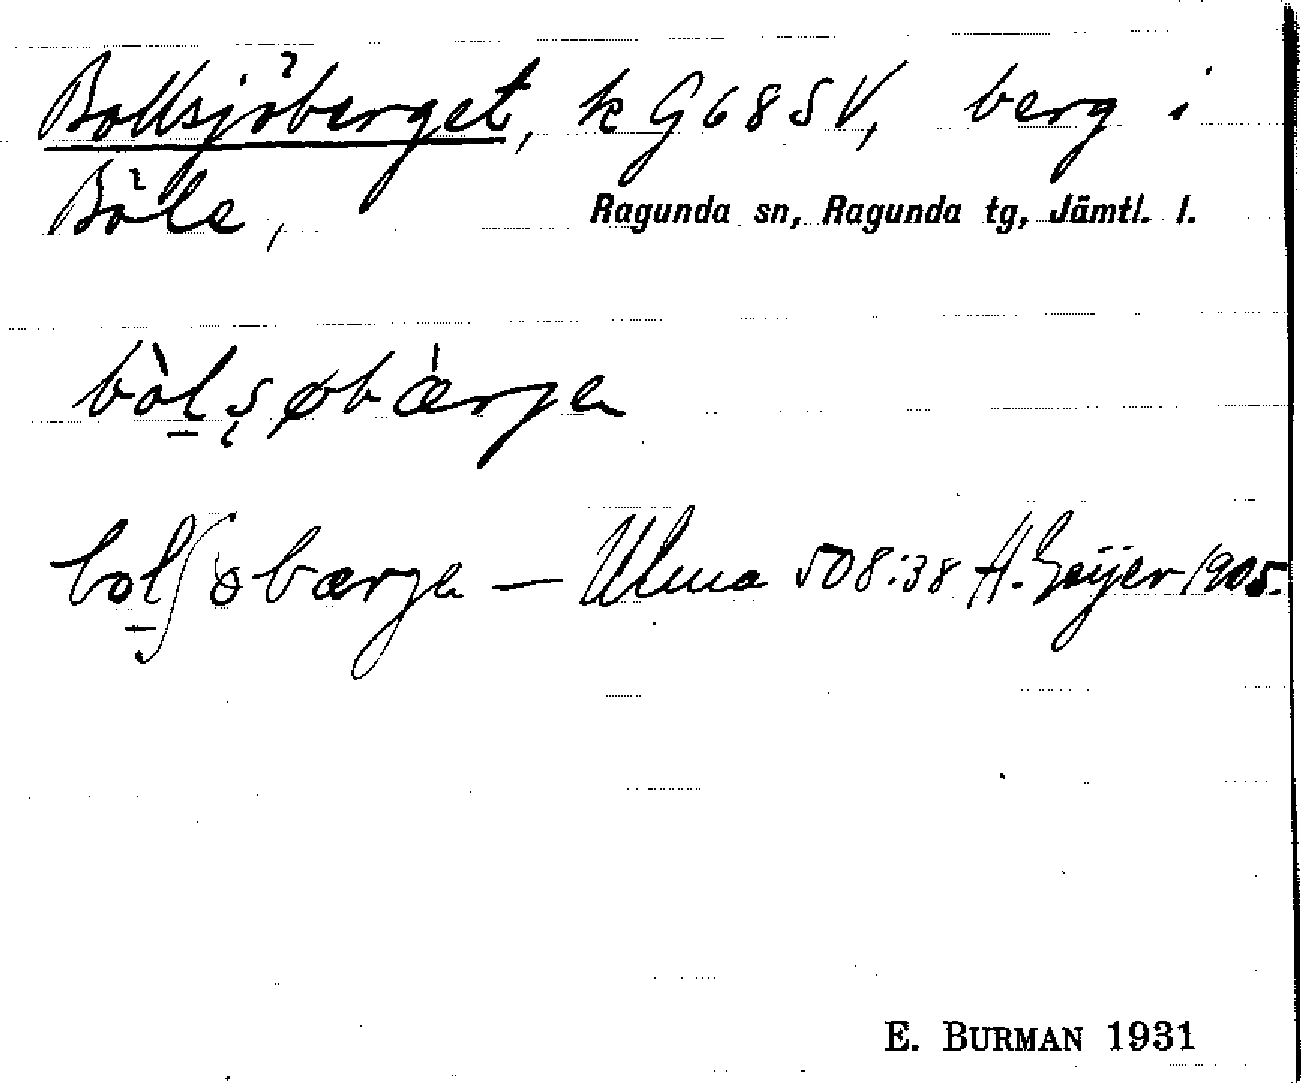 Bollsjöberget, k G 68 SV, berg i
Böle, Ragunda sn, Ragunda tg, Jämtl. l.
bòl̠ʂøbǽrjen
bol̠ʃøbærjen — Ulma 508:38 H. Geijer 1905.
E. BURMAN 1931